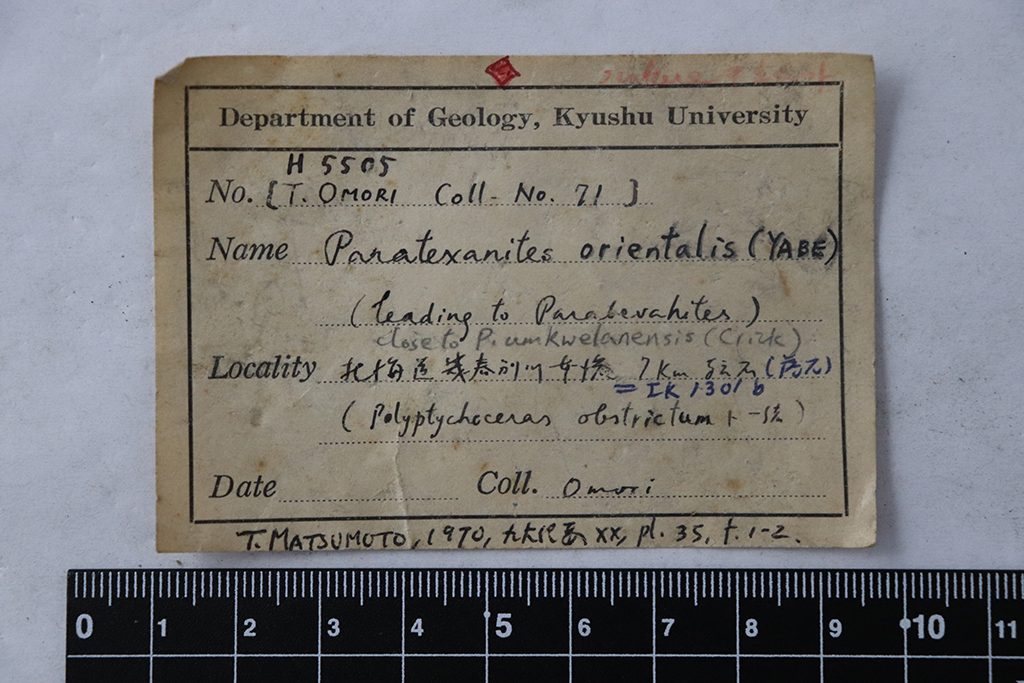 Department of Geology, Kyushu University
H 5505
No. [T. OMORI Coll. No. 71]
Name Paratexanites orientalis (YABE)
(leading to Parabevahites)
close to P. umkwelanensis (Crick)
Locality 北海道幾春別川 7 Km 転石
= IK 1301 b
(Polyptychoceras obstrictum ト一緒)
Date Coll. Omori
T. MATSUMOTO, 1970, 九大紀要 XX, pl. 35, f. 1-2.
0 1 2 3 4 5 6 7 8 9 10 11